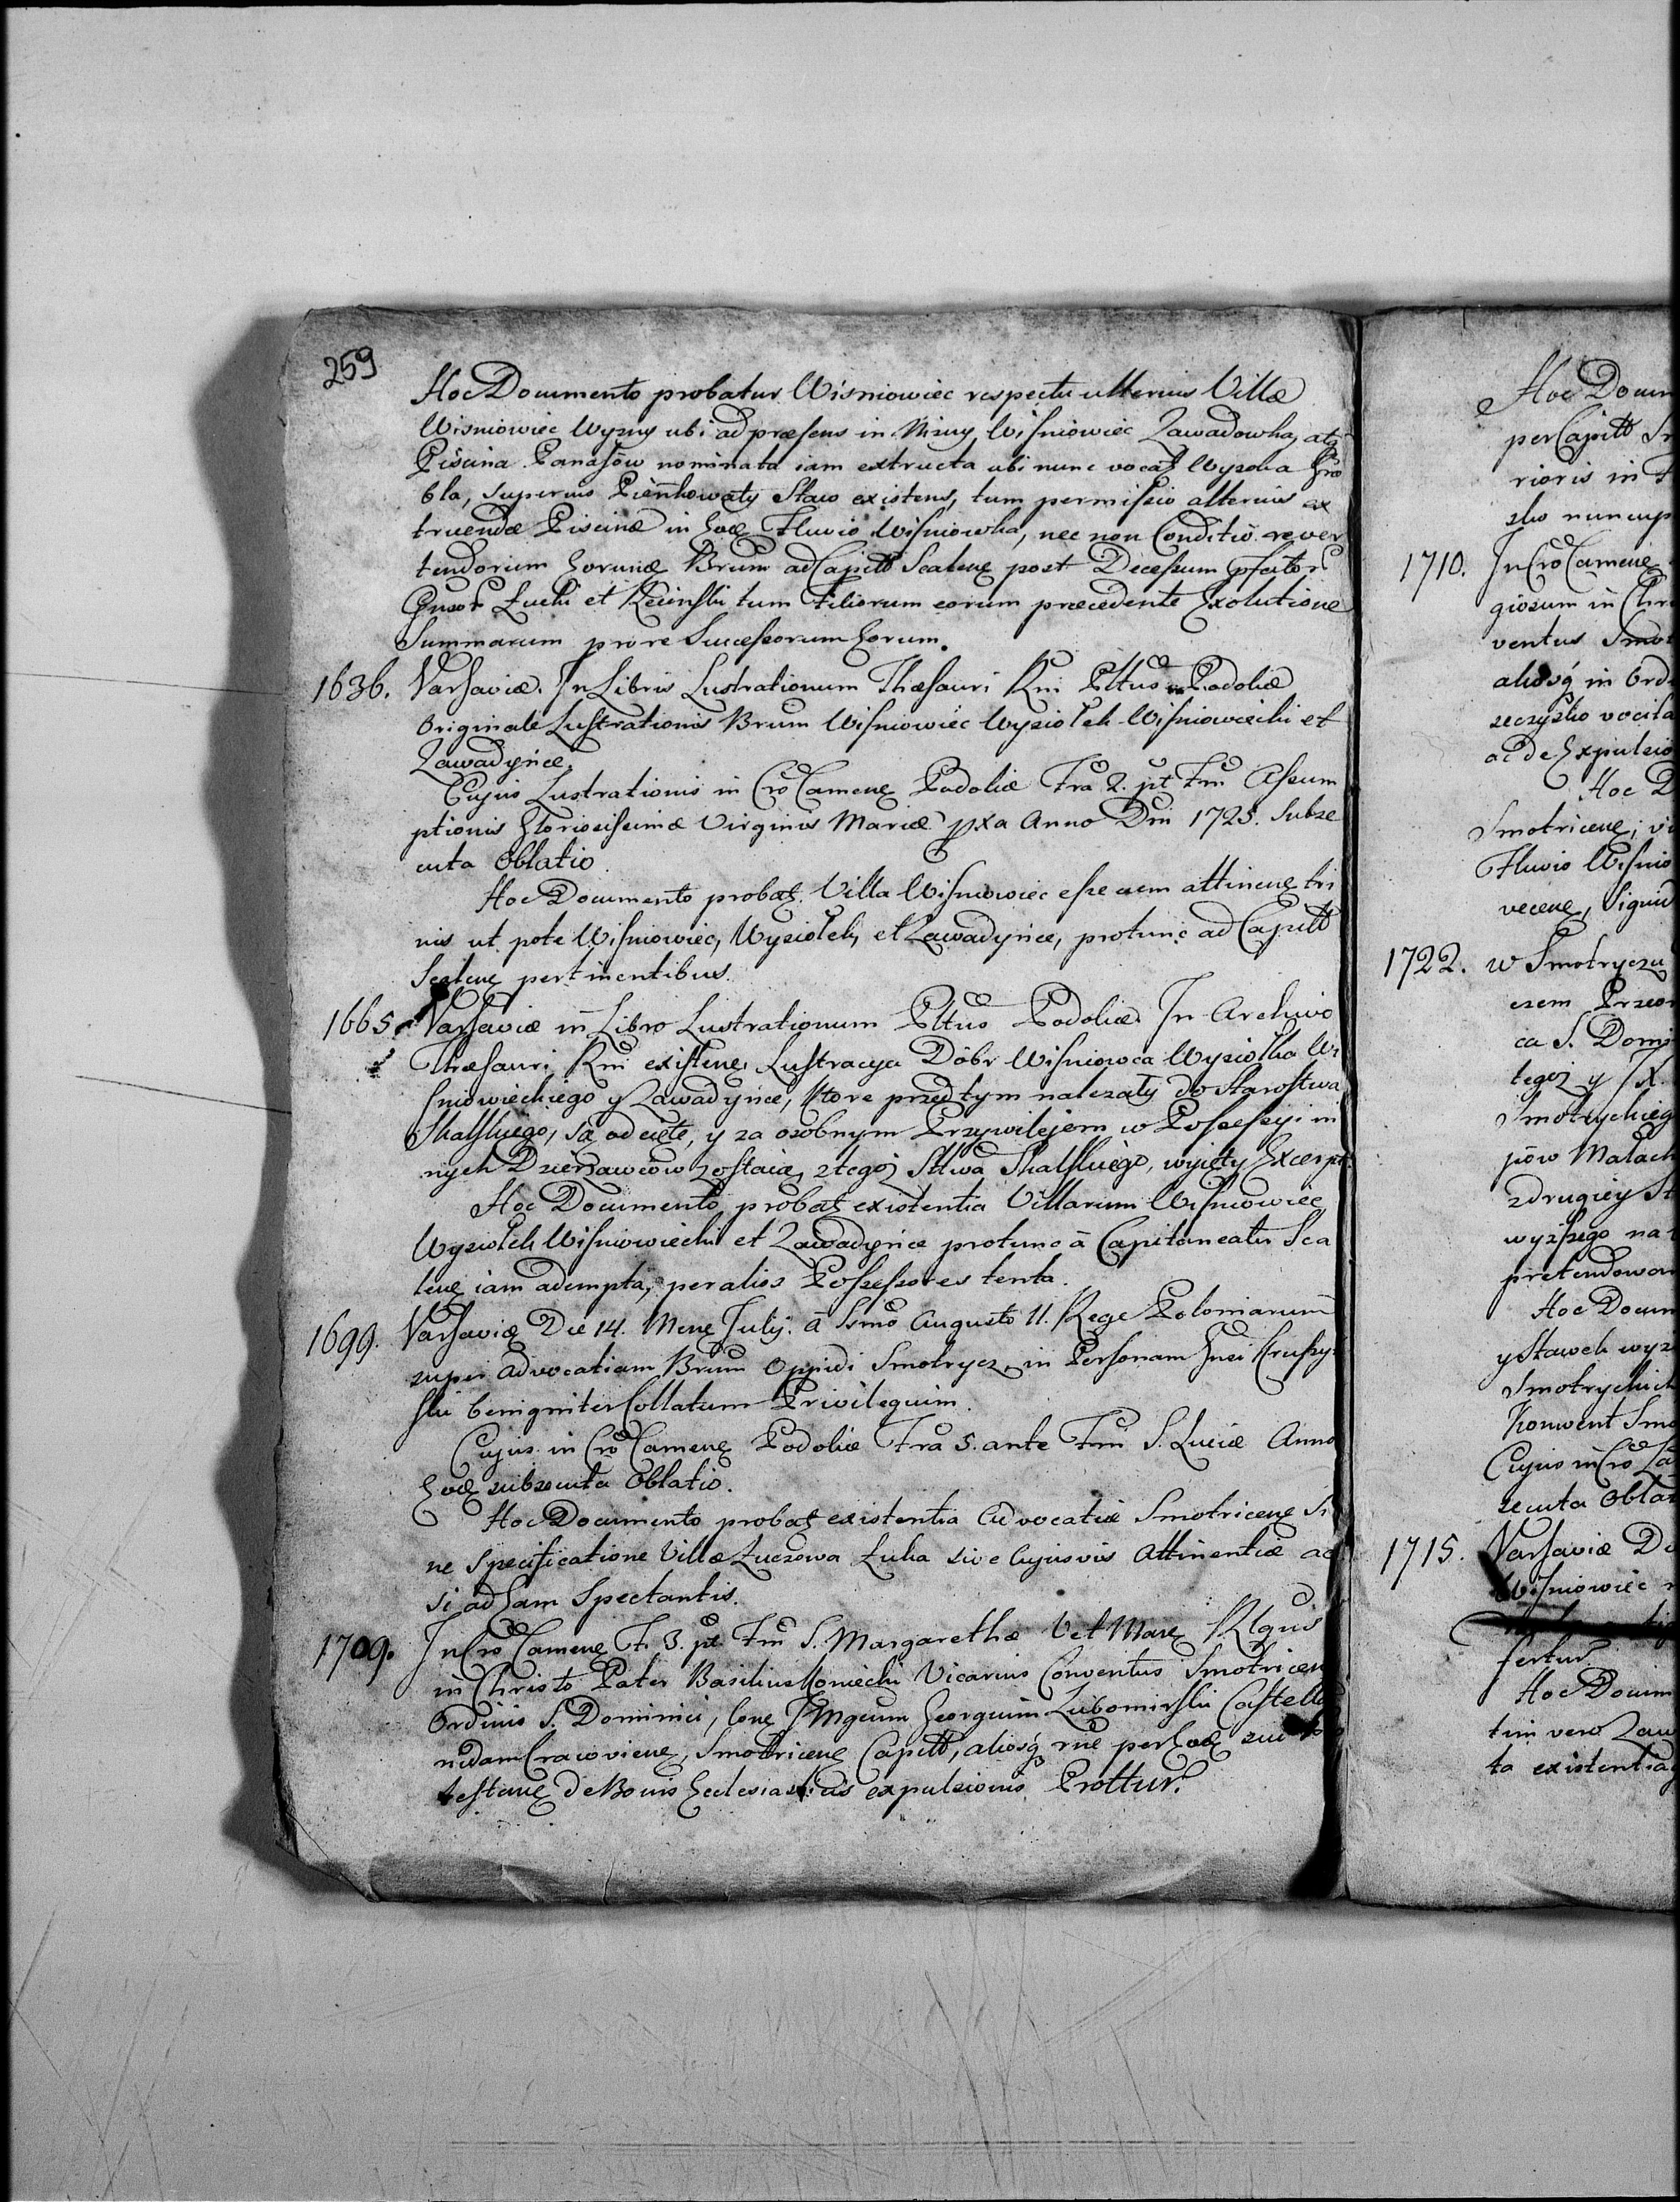 259
Hoc Documento probatur Wisniowiec respectu ulterius Villæ
Wisniowiec Wyzny ubi ad præsens in Nizny Wisniowiec Zawadowka, atq
Piscina Panasów nominata iam extructa ubi nunc vocat Wysoka Gro
bla, superius Pieńkowaty Staw existens, tum permissio alterius ex
truendæ Piscinæ in Eodē Fluvio Wisniowka, nec non Conditio rever
tendorum Eorundē Brum ad Capitt Scalenē post Decessum
Łucki et tum Filiorum eorum præcedente Exolutione
Summarum pro re Successorum Eorum.
1636. Varsaviæ. In Libris Lustrationum Thesauri Rni Pttus Podoliæ
Originale Lustrationis Brum Wisniowiec Wysiołek Wisniowiecki et
Zawadyńce.
Cujus Lustrationis in Cro Camenē Podoliæ Fra 2. pt Fm Assum
ptionis Gloriosissimæ Virginis Mariæ pxa Anno Dni 1725. Subse
cuta Oblatio.
Hoc Documento probat Villa Wisniowiec esse cum attinenē tri
nis ut pote Wisniowiec, Wysiołek, et Zawadyńce, protunc ad Capitt
Scalenē pertinentibus.
1665. Varsaviæ in Libro Lustrationum Pttus Podoliæ. In Archivo
Thesauri Rni existenē Lustracya Dóbr Wisniowca Wysiołka Wi
sniowieckiego y Zawadyńce, ktore przedtym nalezały do Starostwa
Skalskiego, są odcięte, y za osobnym Przywilejem w Possessyi in
nych Dzierżawców zostaią, z tegoż Sttwa Skalskiego, wyięty Excerpt.
Hoc Documento probat existentia Villarum Wisniowiec
Wysiołek Wisniowiecki et Zawadyńce protunc á Capitaneatu Sca
lenē iam adempta, per alios Possessores tenta.
1699. Varsaviæ Die 14. Menē Julij. á Ssmo Augusto II. Rege Poloniarum
super advocatiam Brum Oppidi Smotrycz in Personam Gnei Kruszy
ski benigniter Collatum Privilegium.
Cujus in Cro Camenē Podoliæ Fra 5. ante Fm S. Luciæ Anno
Eodē subsecuta Oblatio.
Hoc Documento probat existentia Advocatiæ Smotricenē Si
ne Specificatione Villæ Łuczowa Łuka sive Cujusvis Attinentiæ ac
si ad Eam Spectantis.
1709. In Cro Camenē F. 3. pt Fm S. Margarethæ V et Marē Rlgus
in Christo Pater Basilius Koniecki Vicarius Conventus Smotricen
Ordinis S. Dominici, Georgium Lubomirski Castella
nidam Cracovienē, Smotricenē Capitt, aliosq rne per Eodē sui
testenē de Bonis Ecclesiasticis expulsionis Prottur.
Hoc Docum
per Capitt
rioris in
sko nuncup
1710. In Cro Camenē
giosum in Chri
ventus Smot
aliosq in Ord
vocita
ac de Expulsio
Hoc D
Smotricenē, vi
Fluvio Wisnio
1722. w Smotryczu
Przeor
ca S. Domi
tegoż y
Smotryckieg
pów Małach
z drugiey St
wyższego na
pretendowan
Hoc Docum
y Stawek wyz
Smotryckich
Konwent Smo
Cujus in Cro Ca
secuta Oblat
1715. Varsaviæ Di
Wisniowiec
fertur.
Hoc Docum
tim vero Zaw
ta existentia